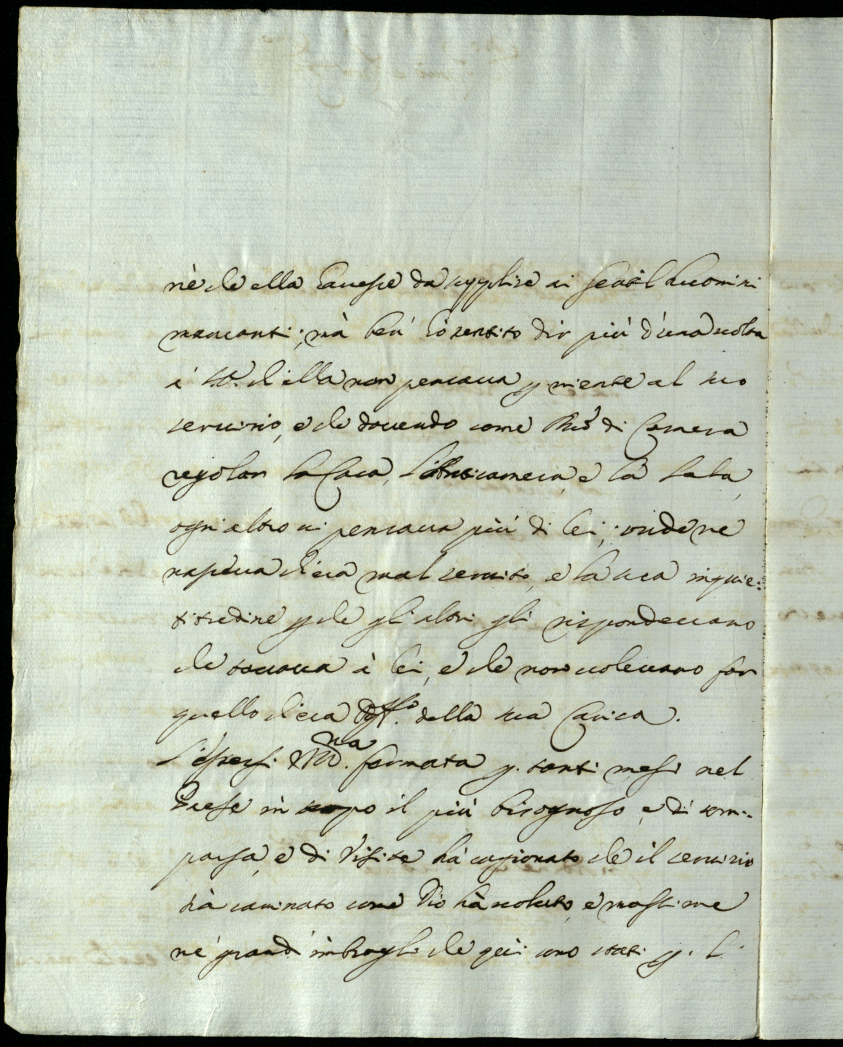 nè che ella havesse da supplire ai Gentilhuomini
mancanti; mà ben hò sentito dir più d'una volta
à S.A. ch'ella non pensava p niente al suo
servizio, e che dovendo come Mro di Camera
regolar la Casa, l'Anticamera, e la Sala,
ogni altro ci pensava più di lei; onde ne
nasceva ch'era mal servito, e la sua inquie:
titudine p che gli altri gli rispondevano
che toccava à lei, e che non volevano far
quello ch'era della sua Carica.
formata p. tanti mesi nel
Paese in tempo il più bisognoso, e di com-
parsa, e di Visite hà cagionato che il servizio
hà caminato come Dio hà voluto, e massime
ne' grandi imbrogli che qui sono stati p. l'